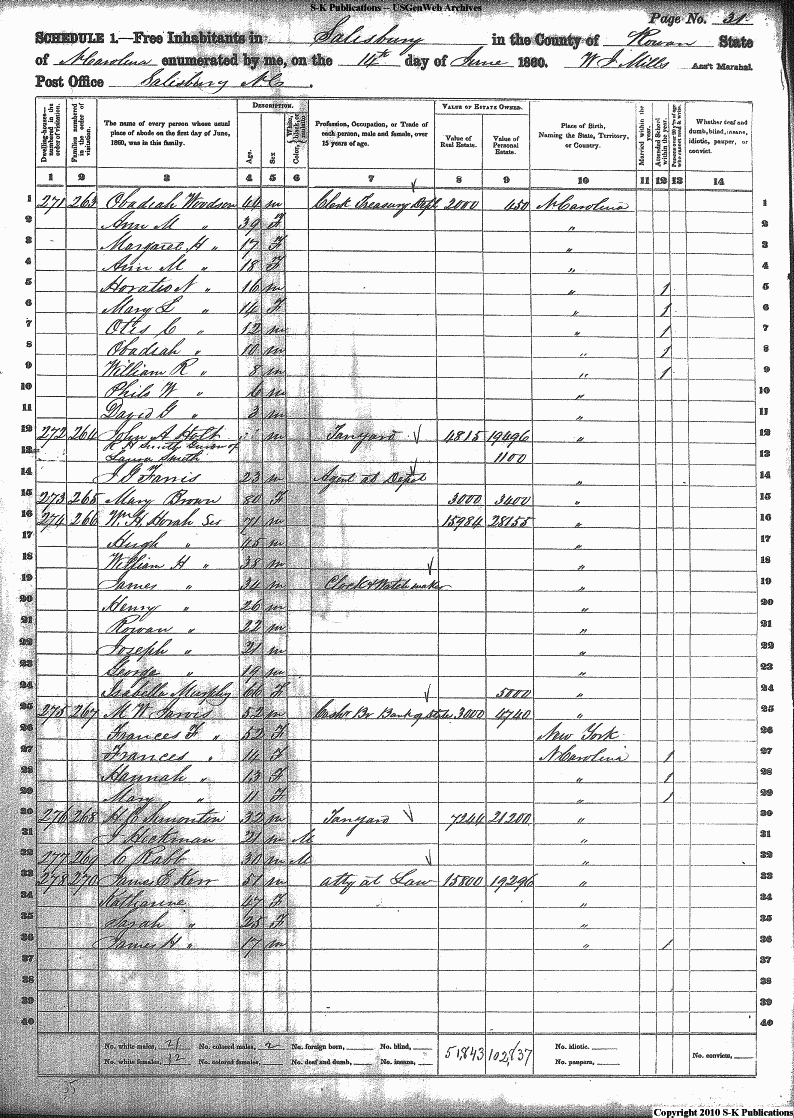 S-K Publications -- USGenWeb Archives
Page No. 31
SCHEDULE 1.—Free Inhabitants in Salisbury in the County of Rowan State
of N Carolina enumerated by me, on the 14th day of June 1860. W J Mills Ass't Marshal.
Post Office Salisbury N C.
DESCRIPTION. VALUE OF ESTATE OWNED.
Dwelling-houses—numbered in the order of visitation. Families numbered in the order of visitation. The name of every person whose usual place of abode on the first day of June, 1860, was in this family. Age. Sex Color, White, black, or mulatto Profession, Occupation, or Trade of each person, male and female, over 15 years of age. Value of Real Estate. Value of Personal Estate. Place of Birth, Naming the State, Territory, or Country. Married within the year. Attended School within the year. Persons over 20 y'rs of age who cannot read & write. Whether deaf and dumb, blind, insane, idiotic, pauper, or convict.
1 2 3 4 5 6 7 8 9 10 11 12 13 14
1 271 263 Obadiah Woodson 44 m Clerk Treasury Dept 2000 450 N Carolina 1
2 Ann M " 39 F " 2
3 Margaret H " 17 F " 3
4 Ann M " 18 F " 4
5 Horatio N " 16 m " 1 5
6 Mary L " 14 F " 1 6
7 Otis C " 12 m " 1 7
8 Obadiah " 10 m " 1 8
9 William R " 8 m " 1 9
10 Phils W " 6 m " 10
11 David G " 3 m " 11
12 272 264 John A Holt m Tanyard 4815 19496 " 12
13 Laura Smith 1100 13
14 23 m Agent at Depot " 14
15 273 265 Mary Brown 80 F 3000 3400 " 15
16 274 266 Wm H. Horah Ser 71 m 15984 28155 " 16
17 Hugh " 45 m " 17
18 William H " 38 m " 18
19 James " 34 m Clock & Watch maker " 19
20 Henry " 26 m " 20
21 Rowan " 22 m " 21
22 Joseph " 21 m " 22
23 George " 19 m " 23
24 Isabella Murphy 66 F 5000 " 24
25 275 267 M W Jarvis 52 m Cashr Br Bank of State 3000 4740 " 25
26 Frances F " 52 F New York 26
27 Frances " 14 F N Carolina 1 27
28 Hannah " 13 F " 1 28
29 Mary " 11 F " 1 29
30 276 268 H C Simonton 32 m Tanyard 7244 21200 " 30
31 J Hickman 21 m M " 31
32 277 269 C Rabb 30 m M " 32
33 278 270 James E Kerr 51 m atty at Law 15800 19296 " 33
34 Katharine 47 F " 34
35 Sarah " 25 F " 35
36 James H " 17 m " 1 36
37 37
38 38
39 39
40 40
No. white males, 21 No. colored males, 2 No. foreign born, No. blind, 51843 102,837 No. idiotic.
No. white females, 12 No. colored females, No. deaf and dumb, No. insane, No. paupers, No. convicts,
35
Copyright 2010 S-K Publications